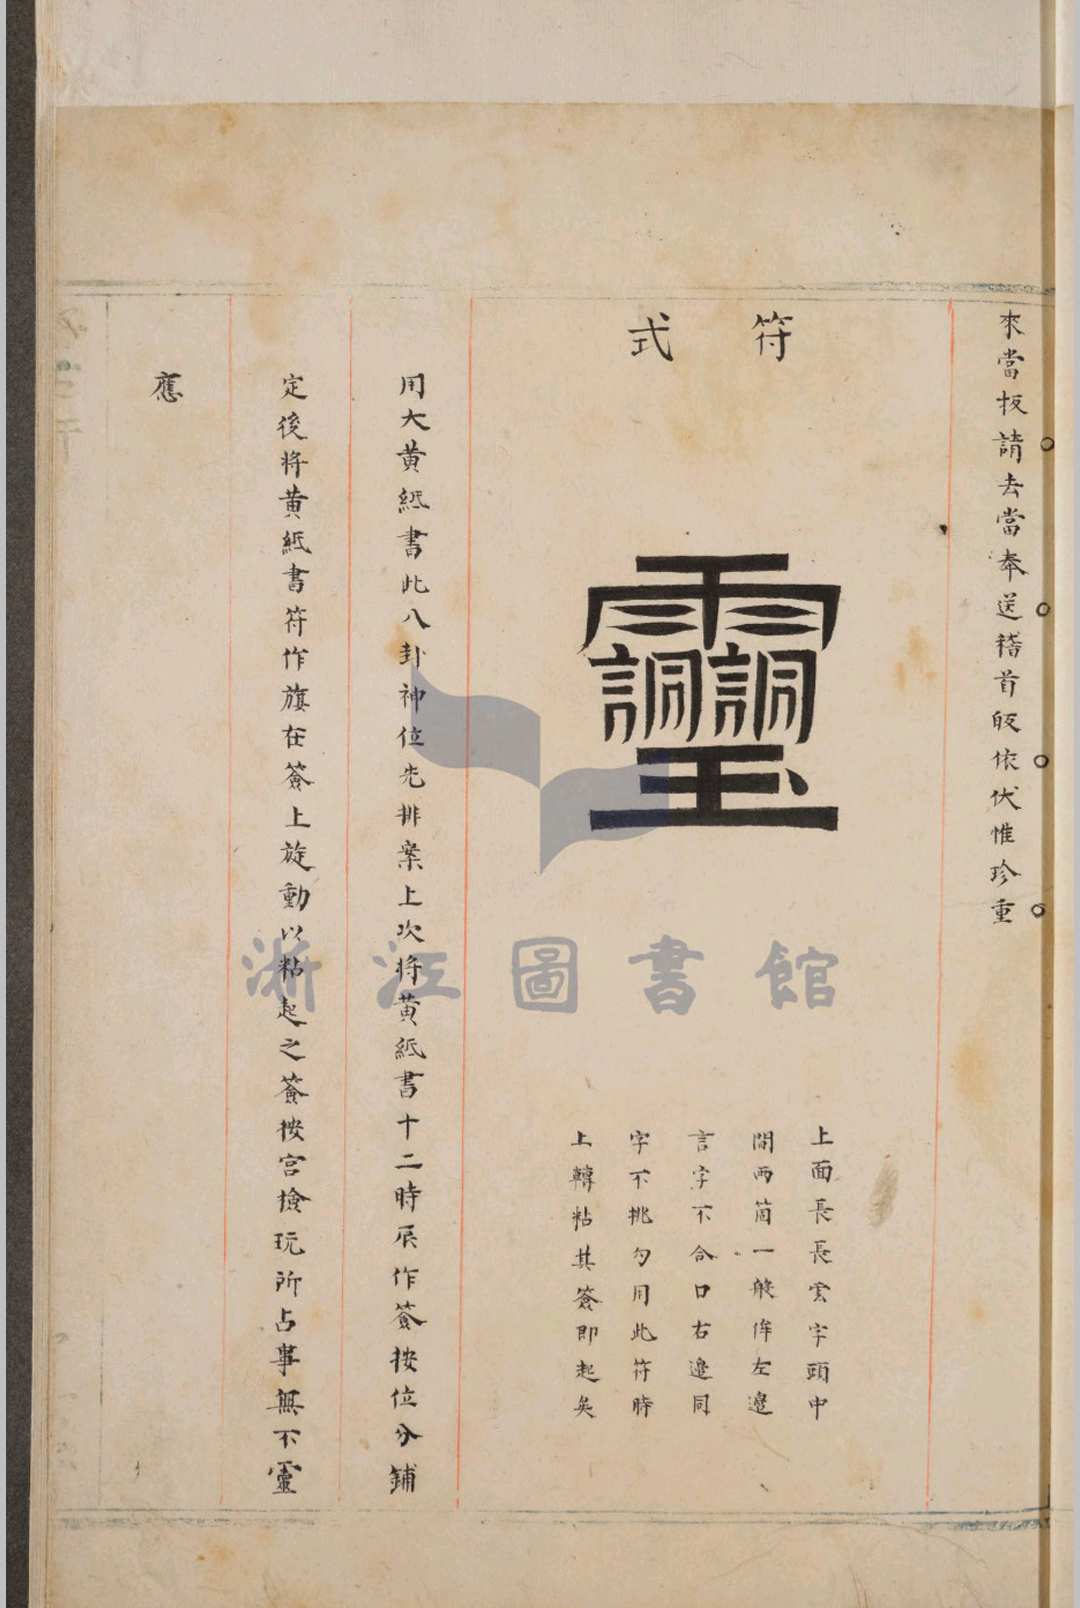 來當扳請去當奉送稽首皈依伏惟珍重
符式
上面長長雲字頭中
間兩箇一般侔左邉
言字不合口右邉同
字不挑勾用此符時
上轉粘其簽即起矣
用大黃紙書此八卦神位先排案上次將黃紙書十二時辰作簽按位分鋪
定後將黃紙書符作旗在簽上旋動以粘起之簽按宮撿玩所占事無不靈
應
浙江圖書館